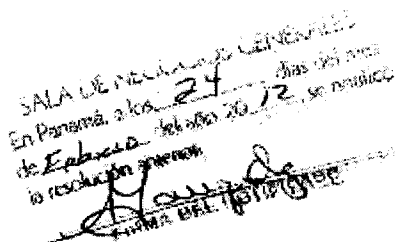 SALA DE NEGOCIOS GENERALES
En Panamá, a los 24 días del mes
de Febrero del año 20 12, se notificó
la resolución anterior.
FIRMA DEL